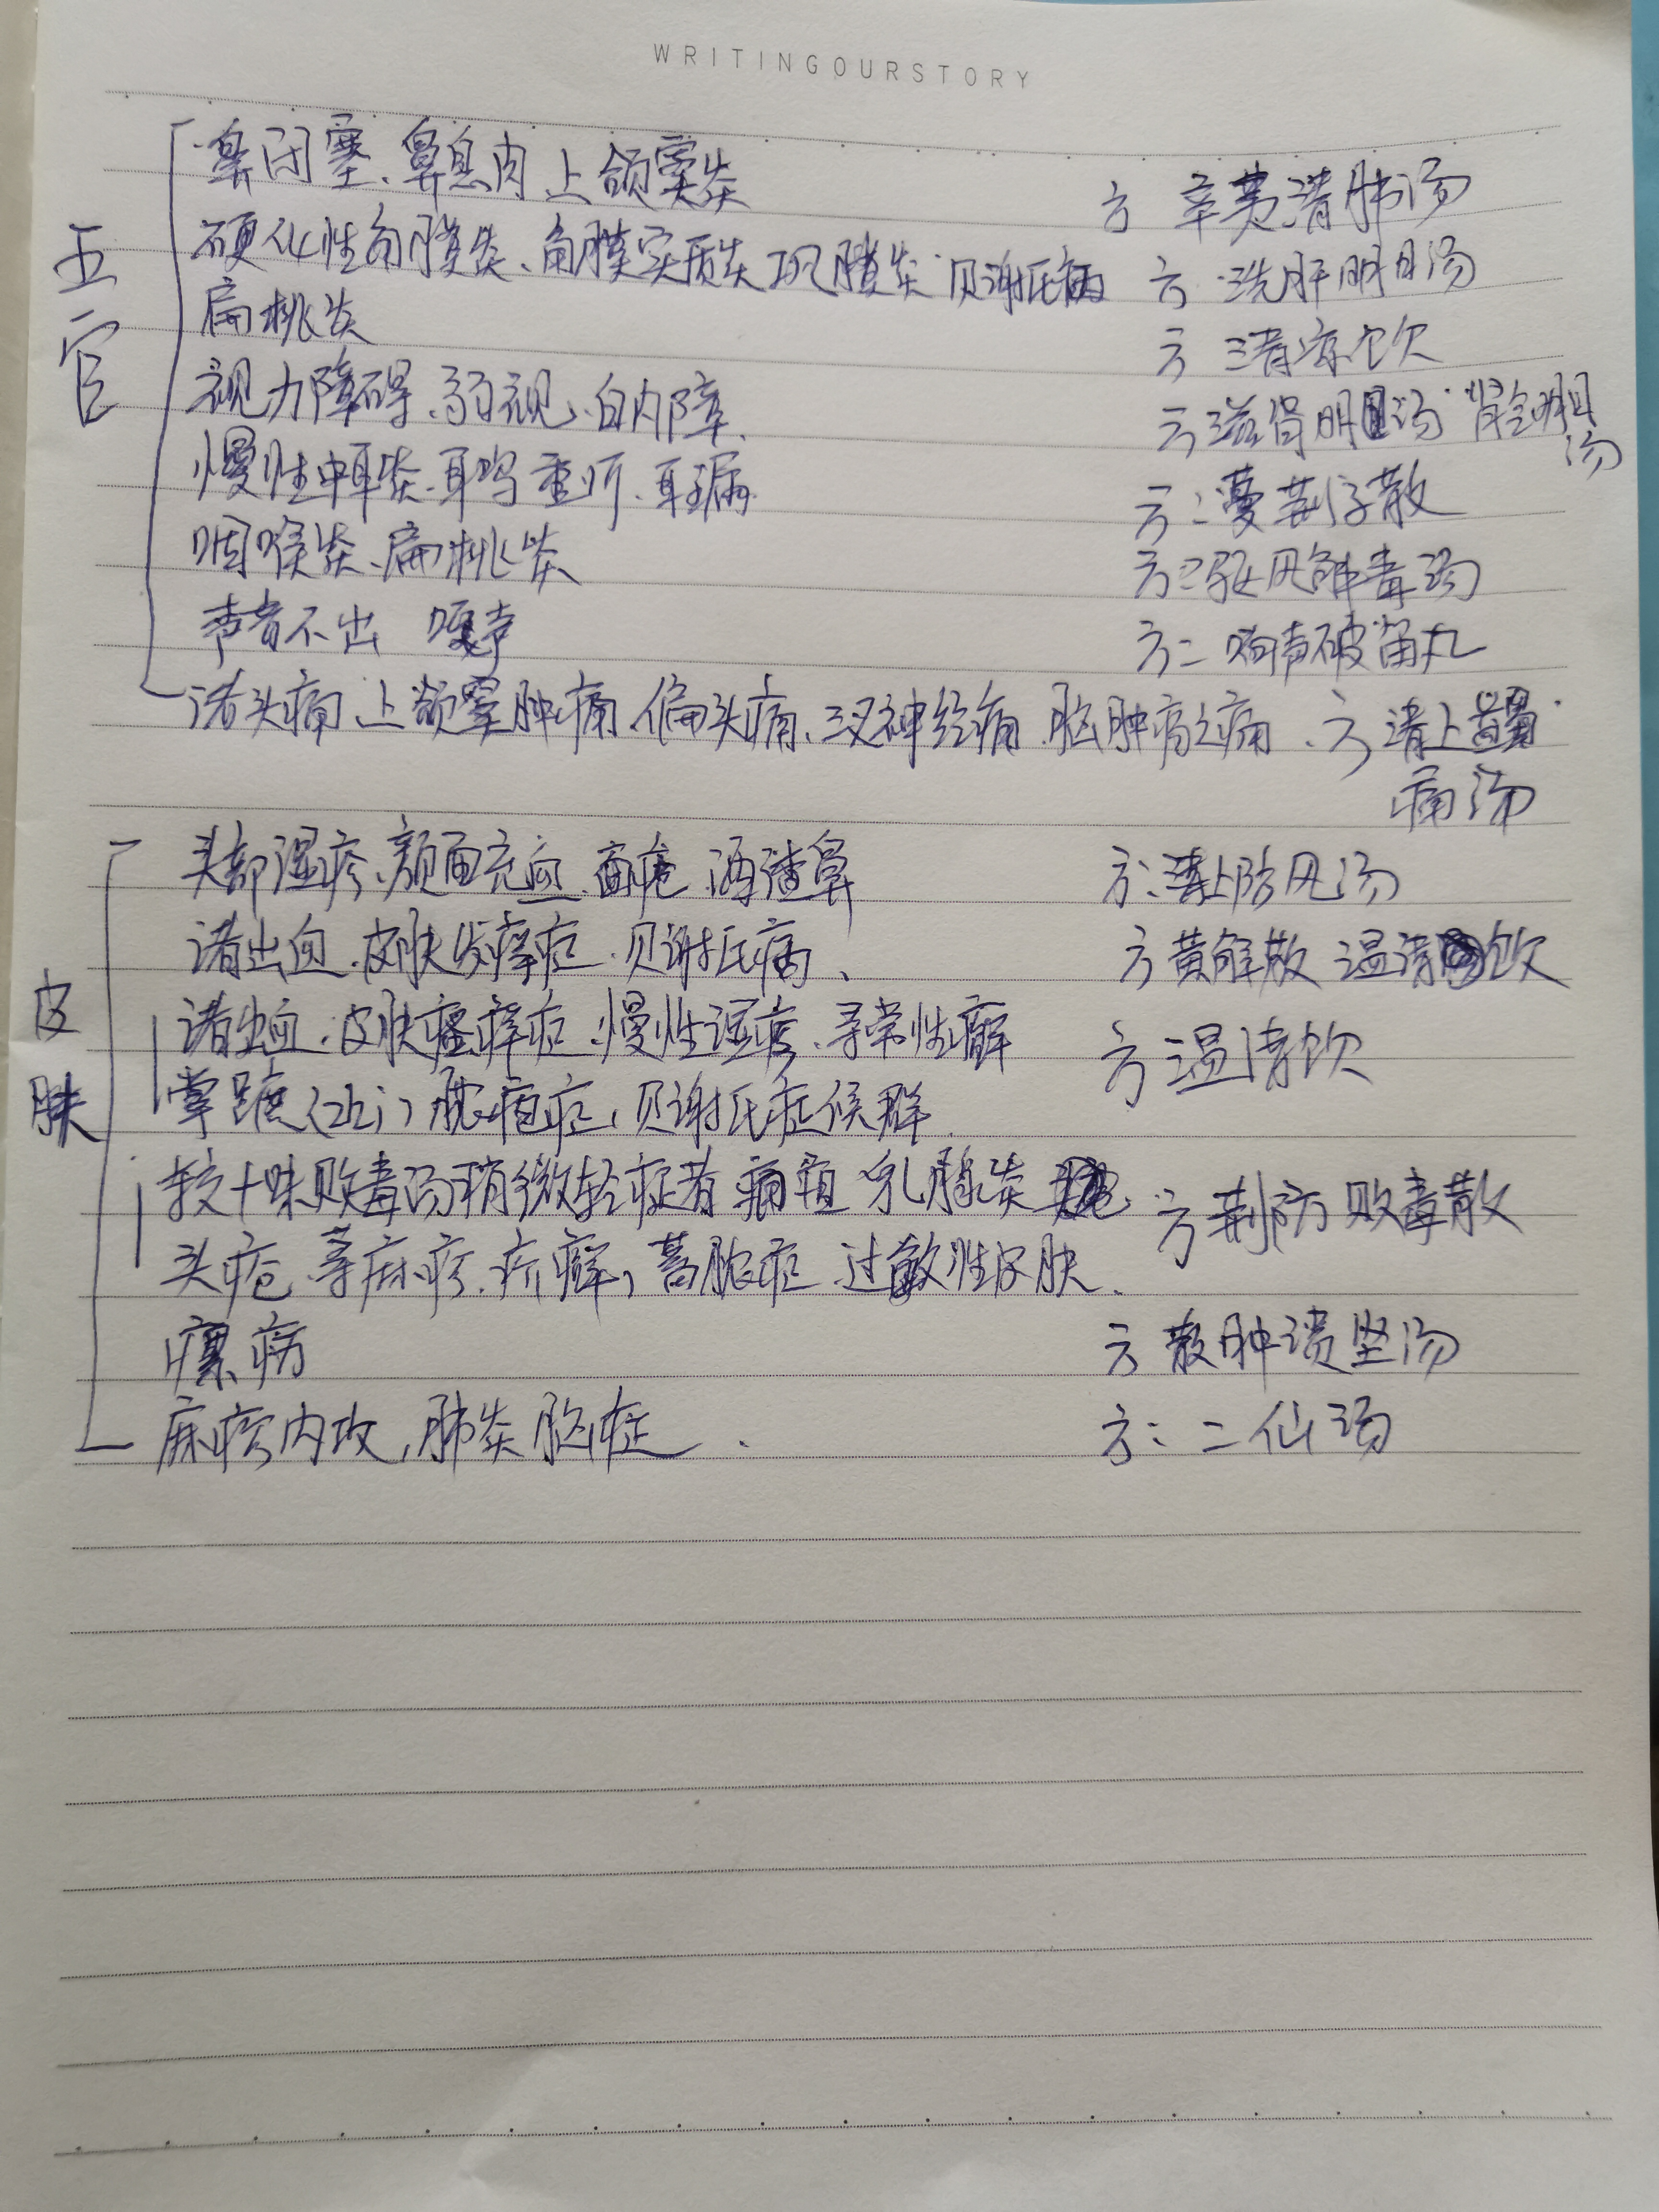 WRITINGOURSTORY
五官
鼻闭塞、鼻息肉 上颌窦炎 方 辛夷清肺汤
硬化性角膜炎、角膜实质炎 巩膜炎 贝谢氏病 方 洗肝明目汤
扁桃炎 方 清凉饮
视力障碍、弱视、白内障. 方 滋肾明目汤 肾气明目汤
慢性中耳炎.耳鸣 重听.耳漏. 方:蔓荆子散
咽喉炎、扁桃炎 方:驱风解毒汤
声音不出 嘎声 方:响声破笛丸
诸头痛 上颌窦肿痛.偏头痛、三叉神经痛.脑肿疡之痛. 方 清上蠲
痛汤
皮肤
头部湿疹、颜面充血.面疱.酒渣鼻 方:清上防风汤
诸出血.皮肤发痒症.贝谢氏病、 方 黄解散 温清饮
诸出血.皮肤瘙痒症.慢性湿疹.寻常性癣 方 温清饮
掌蹠(zhi)脓疱症,贝谢氏症候群.
较十味败毒汤稍微轻症者 痈疽 乳腺炎 方 荆防败毒散
头疮 荨麻疹.疥癣,蓄脓症.过敏性皮肤.
瘰疬 方 散肿溃坚汤
麻疹内攻,肺炎 脑症. 方:二仙汤